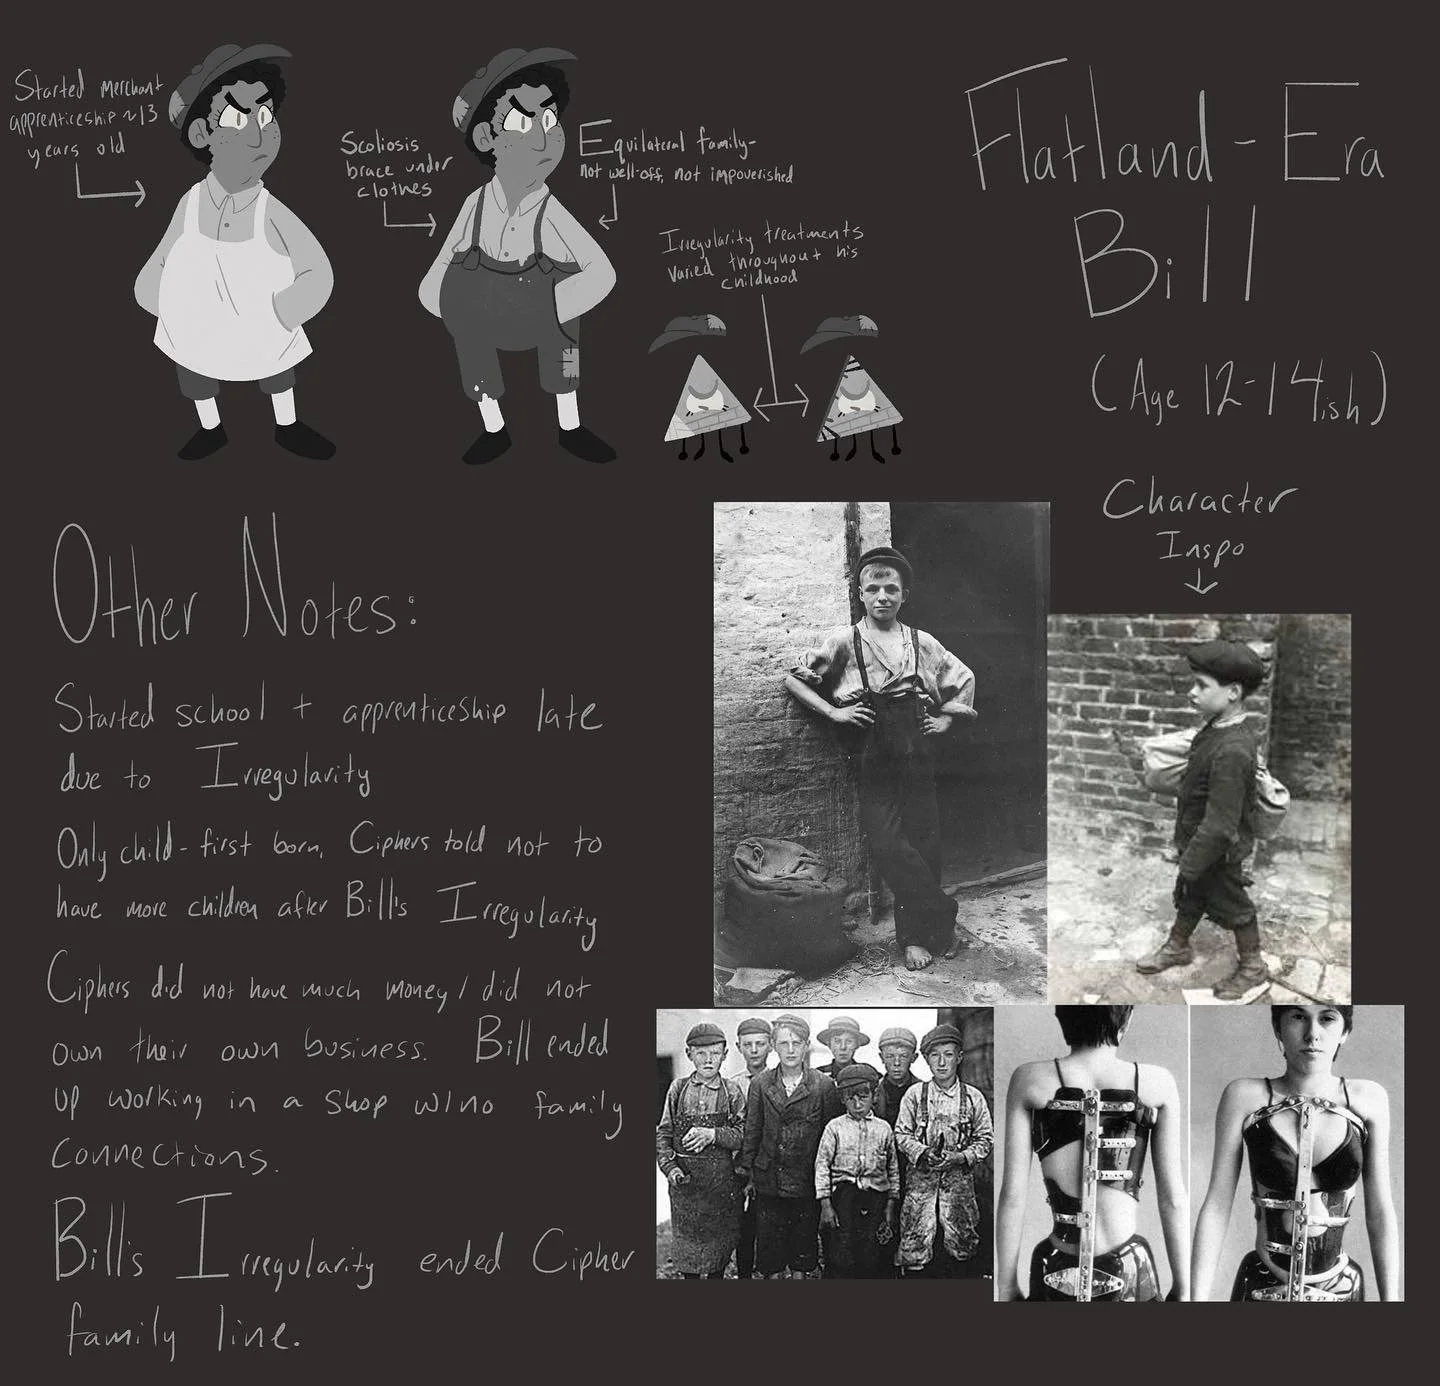 Flatland-Era
Bill
(Age 12-14ish)
Started merchant
apprenticeship ~13
years old
Scoliosis
brace under
clothes
Equilateral family-
not well-off, not impoverished
Irregularity treatments
varied throughout his
childhood
Character
Inspo
Other Notes:
Started school + apprenticeship late
due to Irregularity
Only child- first born, Ciphers told not to
have more children after Bill's Irregularity
Ciphers did not have much money/did not
own their own business. Bill ended
up working in a shop w/no family
connections.
Bill's Irregularity ended Cipher
family line.